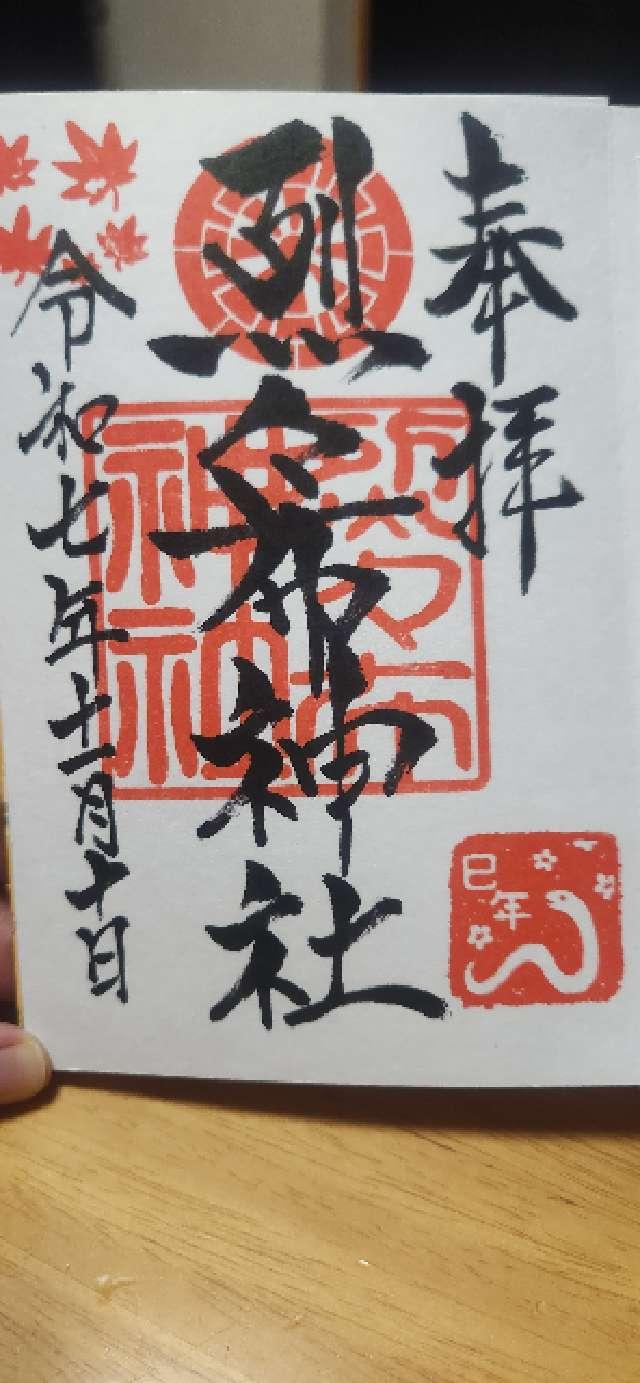 奉拝
烈々布神社
令和七年十一月十日
烈々布
神社
巳年